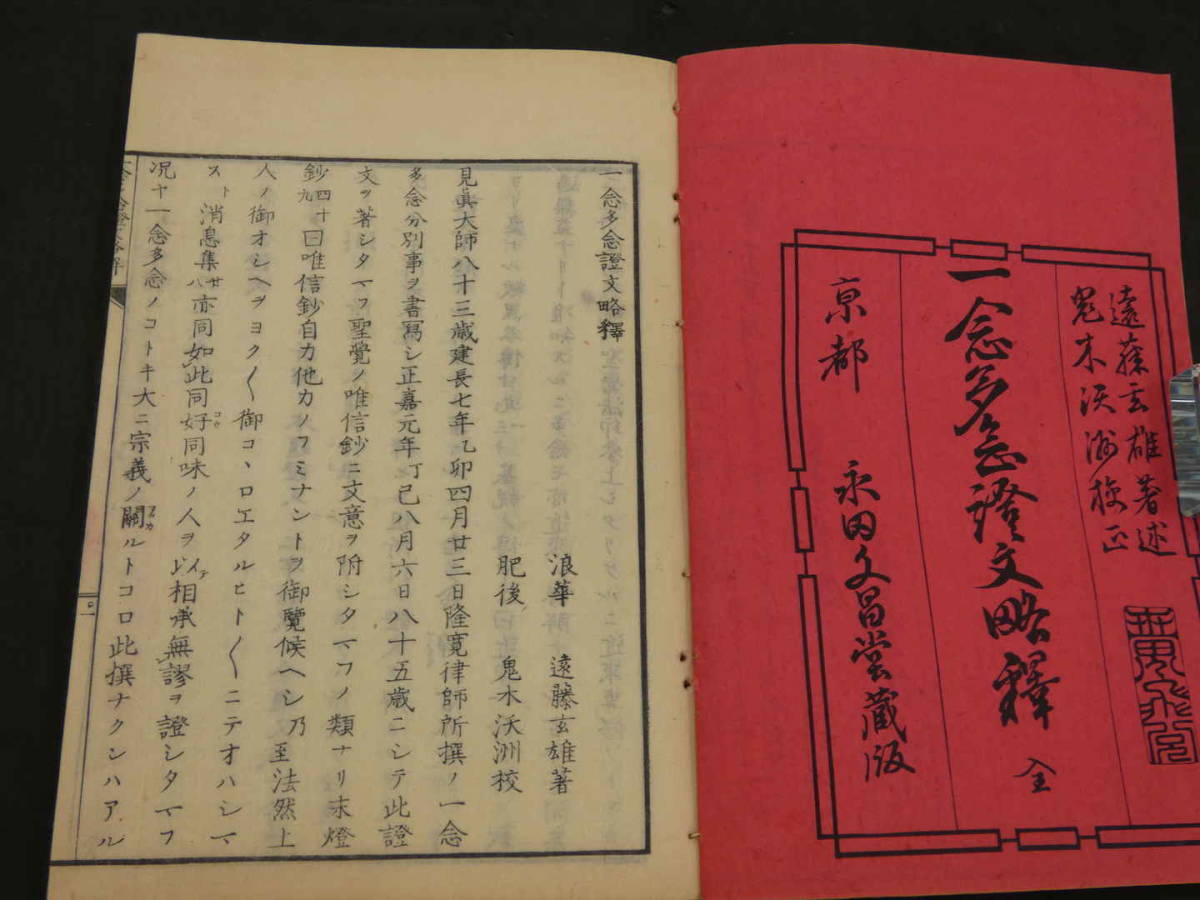 遠藤玄雄著述
鬼木沃洲校正
一念多念證文略釋 全
京都 永田文昌堂藏版
一念多念證文略釋
浪華 遠藤玄雄著
肥後 鬼木沃洲校
見眞大師八十三歳建長七年乙卯四月廿三日隆寛律師所撰ノ一念
多念分別事ヲ書寫シ正嘉元年丁巳八月六日八十五歳ニシテ此證
文ヲ著シタマフ聖覺ノ唯信鈔ニ文意ヲ附シタマフノ類ナリ末燈
鈔四十九曰唯信鈔自力他力ノフミナントヲ御覽候ヘシ乃至法然上
人ノ御オシヘヲヨク〱御コヽロエタルヒト〱ニテオハシマ
スト消息集廿八亦同如此同好同味ノ人ヲ以テ相承無謬ヲ證シタマフ
况ヤ一念多念ノコトキ大ニ宗義ノ關ルトコロ此撰ナクンハアル